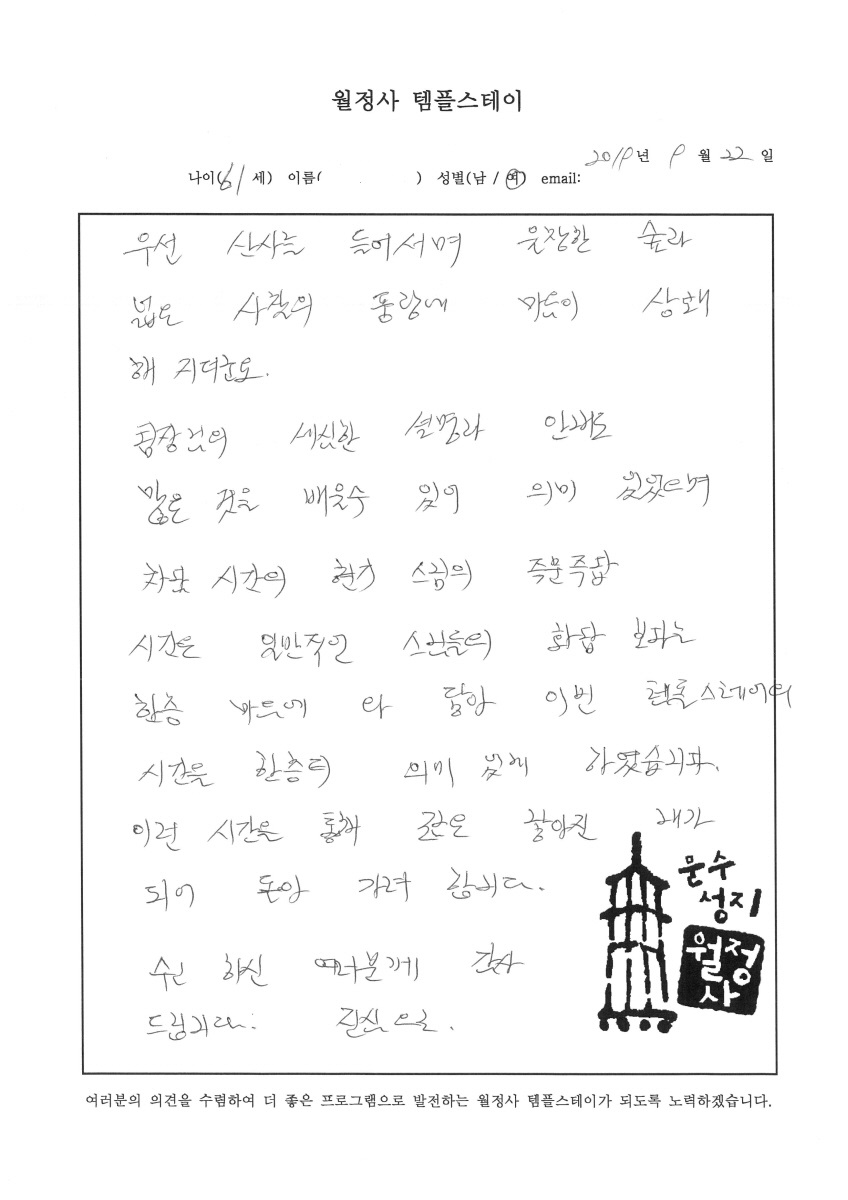 월정사 템플스테이
2019년 9월 22일
나이(61세) 이름( ) 성별(남 / 여) email:
우선 산사를 들어서며 웅장한 숲과
넓은 사찰의 풍광에 마음이 상쾌
해 지더군요.
팀장님의 세심한 설명과 안내로
많은 것을 배울수 있어 의미 있었으며
차담 시간의 스님의 즉문즉답
시간은 일반적인 스님들의 화답 보다는
한층 마음에 와 닿아 이번 템플스테이의
시간을 한층더 의미 있게 하였습니다.
이런 시간을 통해 조금은 맑아진 내가
되어 돌아 가려 합니다.
수고 하신 여러분께 감사
드립니다. 진심으로.
문수
성지
월정
사
여러분의 의견을 수렴하여 더 좋은 프로그램으로 발전하는 월정사 템플스테이가 되도록 노력하겠습니다.